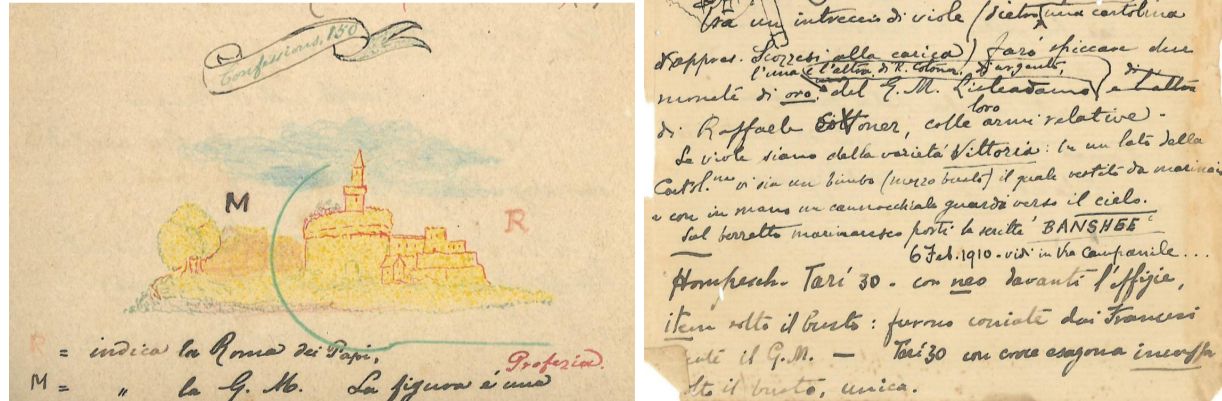 Confessions, 150
M
R
R = indica la Roma dei Papi,
Profezia.
M = " la G. M. La figura è una
Tra un intreccio di viole (dietro una cartolina
d'appres. Scozzesi alla carica) farò spiccare due
l'una e l'altra di R. Cotoner, d'argento,
monete di oro, del G. M. L'isleadamo, e l'altra di
di Raffaele Cottoner, colle loro armi relative -
Le viole siano della varietà Vittoria: in un lato della
Cartol. vi sia un bimbo (mezzo busto) il quale vestito da marinaio
e con in mano un cannocchiale guarda verso il cielo.
Sul berretto marinaresco porti la scritta "BANSHEE"
6 Feb. 1910 - vidi in Via Campanile...
Hompesch - Tarì 30 - con neo davanti l'effigie,
item sotto il busto: furono coniate dai Francesi
il G. M. — Tarì 30 con croce esagona
il busto, unica.